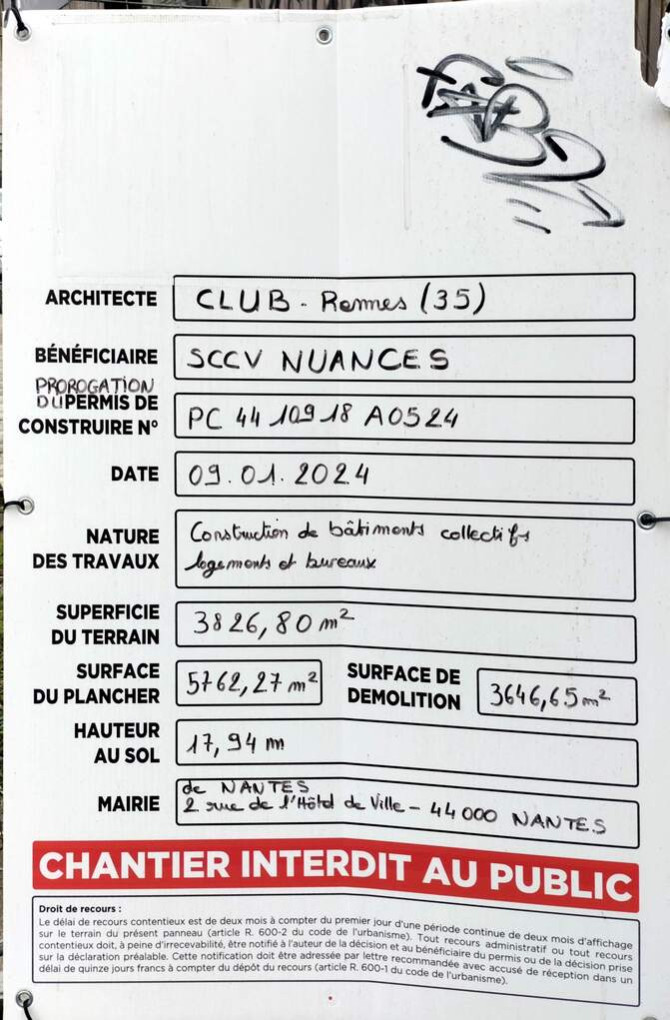 ARCHITECTE CLUB - Rennes (35)
BÉNÉFICIAIRE SCCV NUANCES
PROROGATION
DU PERMIS DE
CONSTRUIRE N° PC 44 109 18 A0524
DATE 09.01.2024
NATURE
DES TRAVAUX
Construction de bâtiments collectifs
logements et bureaux
SUPERFICIE
DU TERRAIN
3826,80 m²
SURFACE
DU PLANCHER
5762,27 m²
SURFACE DE
DEMOLITION
3646,65 m²
HAUTEUR
AU SOL
17,94 m
MAIRIE
de NANTES
2 rue de l'Hôtel de Ville - 44000 NANTES
CHANTIER INTERDIT AU PUBLIC
Droit de recours :
Le délai de recours contentieux est de deux mois à compter du premier jour d'une période continue de deux mois d'affichage
sur le terrain du présent panneau (article R. 600-2 du code de l'urbanisme). Tout recours administratif ou tout recours
contentieux doit, à peine d'irrecevabilité, être notifié à l'auteur de la décision et au bénéficiaire du permis ou de la décision prise
sur la déclaration préalable. Cette notification doit être adressée par lettre recommandée avec accusé de réception dans un
délai de quinze jours francs à compter du dépôt du recours (article R. 600-1 du code de l'urbanisme).